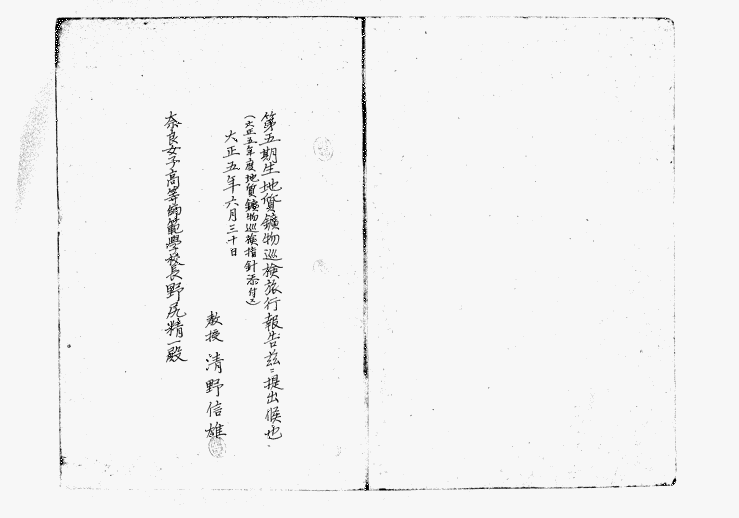 第五期生地質鑛物巡検旅行報告玆ニ提出候也
(大正五年度地質鑛物巡検指針添付ス)
大正五年六月三十日
教授 清野信雄
奈良女子高等師範學校長野尻精一殿